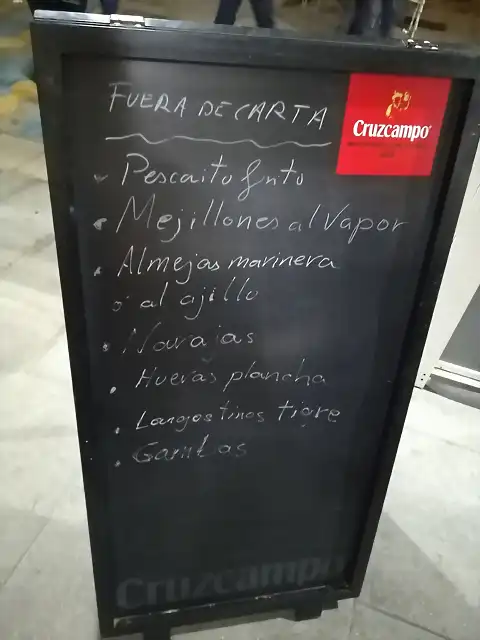 FUERA DE CARTA
Cruzcampo
Pescaito frito
Mejillones al Vapor
Almejas marinera
o al ajillo
Navajas
Huevas plancha
Langostinos tigre
Gambas
Cruzcampo